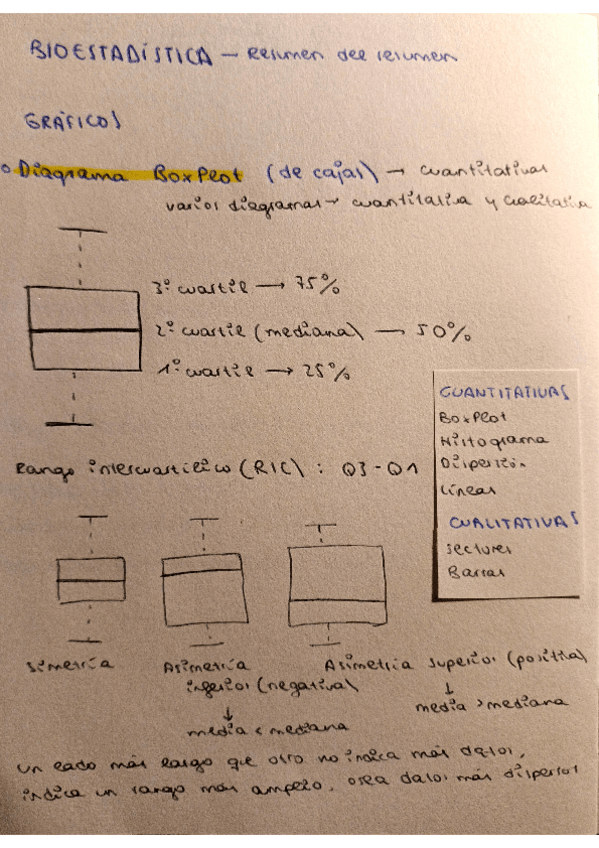 BIOESTADÍSTICA — Resumen del resumen
GRÁFICOS
o Diagrama BoxPlot (de cajas) → cuantitativas
varios diagramas → cuantitativa y cualitativa
3º cuartil → 75%
2º cuartil (mediana) — 50%
1º cuartil → 25%
Rango intercuartílico (RIC) : Q3-Q1
CUANTITATIVAS
BoxPlot
Histograma
Dispersión
Líneas
CUALITATIVAS
Sectores
Barras
Simetría
Asimetría
inferior (negativa)
↓
media < mediana
Asimetría superior (positiva)
↓
media > mediana
un lado más largo que otro no indica más datos,
indica un rango más amplio, osea datos más dispersos